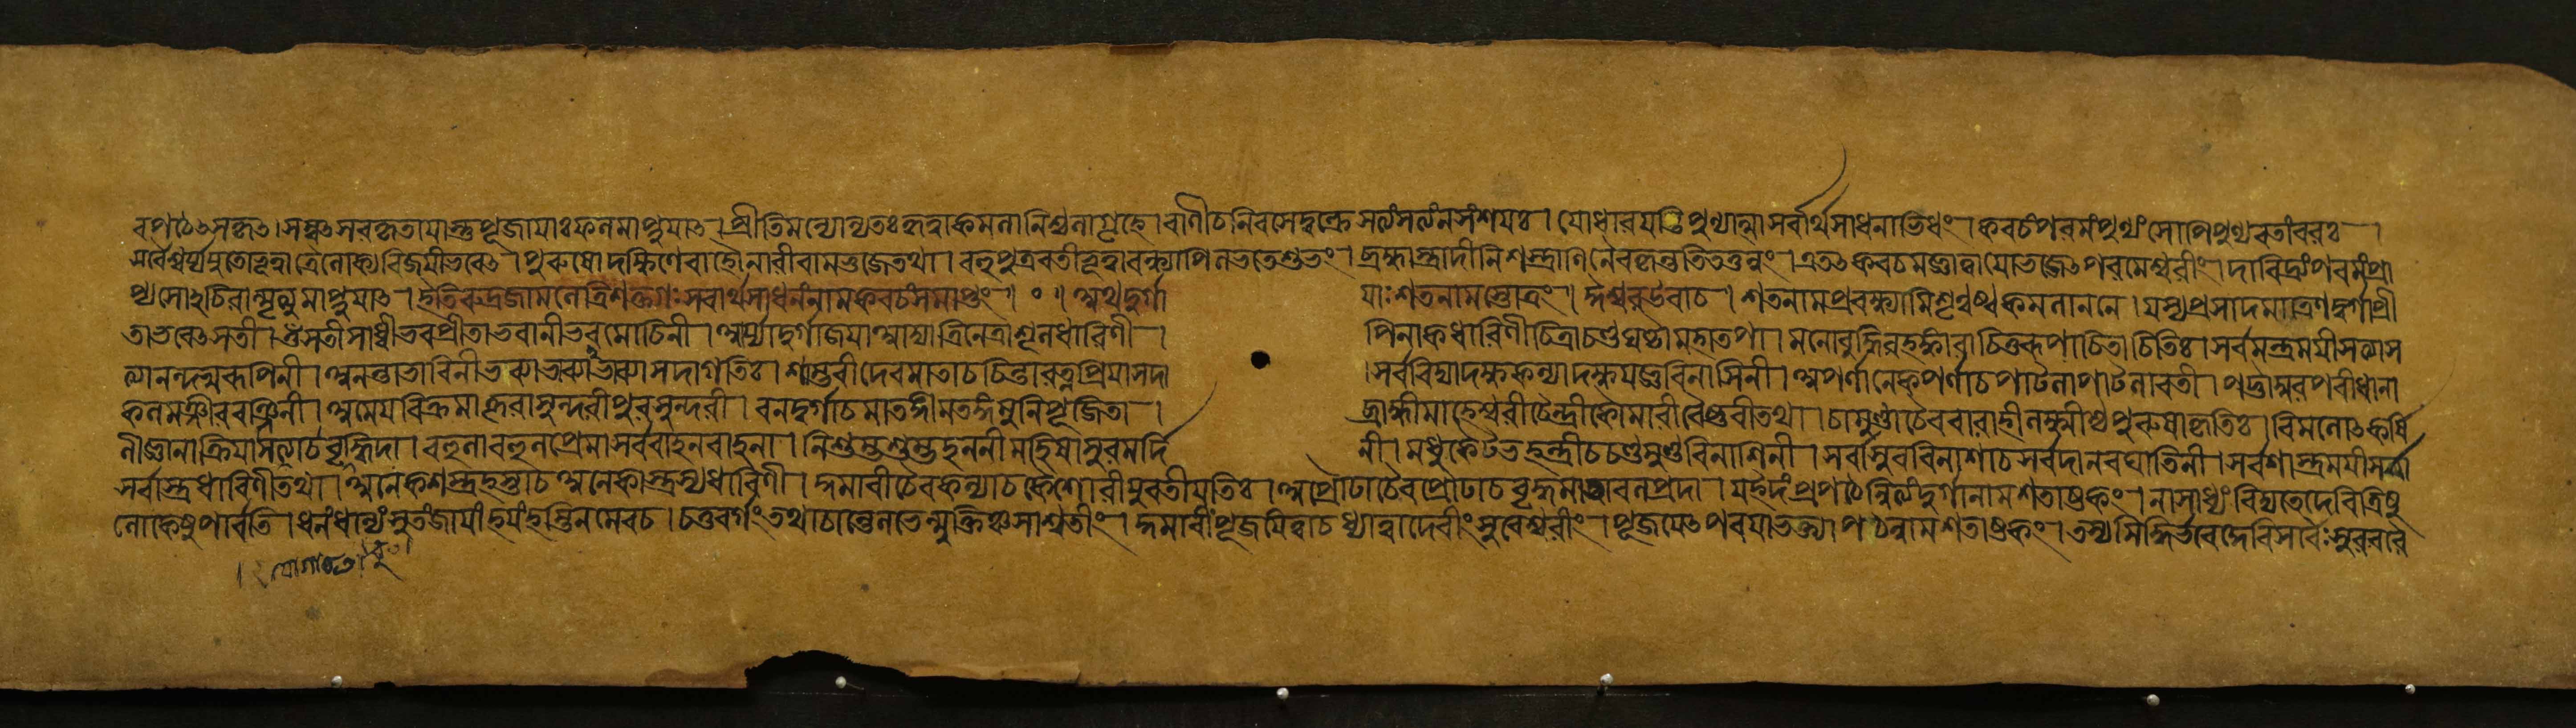 ৰপঠেৎসকৃৎ। সম্যক্ সৰকৃতায়াস্তুপূজায়াঃফলমাপ্নুয়াৎ। প্ৰীতিমন্যোন্যতঃকৃত্বাকমলানিশ্চলাগৃহে। বাণীচনিবসেদ্বক্ত্ৰে সত্যংসত্যংনসংশয়ঃ। যোধাৰয়তিপুণ্যাত্মাসৰ্বাৰ্থসাধনাভিধং। কবচংপৰমংপুণ্যং সোপিপুণ্যৱতাংবৰঃ।
সৰ্বৈশ্বৰ্য্যযুতোভূত্বাত্ৰৈলোক্যবিজয়ীভবেৎ। পুৰুষোদক্ষিণেবাহৌনাৰীবামভুজেতথা। বহুপুত্ৰৱতীভূত্বাবন্ধ্যাপিলভতেশুতং। ব্ৰহ্মাস্ত্ৰাদীনিশস্ত্ৰাণিনৈৱকৃন্তন্তিতত্তনুং। এতৎকবচমজ্ঞাত্বাযোভজেৎপৰমেশ্বৰীং। দাৰিদ্ৰ্যংপৰমংপ্ৰা
প্যসোঽচিৰান্মৃত্যুমাপ্নুয়াৎ। ইতিৰুদ্ৰজামলেত্ৰিশক্ত্যাঃসৰ্বাৰ্থসাধনংনামকবচংসমাপ্তং॥ ০॥ অথদুৰ্গা য়াঃশতনামস্তোত্ৰং॥ ঈশ্বৰউবাচ। শতনামপ্ৰবক্ষ্যামিশৃণুষ্বকমলাননে। যস্যপ্ৰসাদমাত্ৰেণদুৰ্গাপ্ৰী
তাভবেৎসতী। ওঁসতীসাধ্বীভবপ্ৰীতাভবানীভবমোচিনী। আৰ্য্যাদুৰ্গাজয়াআদ্যাত্ৰিনেত্ৰাশূলধাৰিণী। পিনাকধাৰিণীচিত্ৰাচণ্ডঘণ্টামহাতপা। মনোবুদ্ধিৰহংকাৰাচিত্তৰূপাচিতাচিতিঃ। সৰ্বমন্ত্ৰময়ীসত্যাস
ত্যানন্দস্বৰূপিনী। অনন্তাভাবিনীভব্যাভব্যাভাব্যাসদাগতিঃ। শাম্ভবীদেবমাতাচচিন্তাৰত্নপ্ৰিয়াসদা ।সৰ্ববিদ্যাদক্ষকন্যাদক্ষযজ্ঞবিনাসিনী। অপৰ্ণানেকপৰ্ণাচপাটলাপাটলাবতী। পট্টাম্বৰপৰীধানা
কলমঞ্জীৰৰঞ্জিনী। অমেয়বিক্ৰমাক্ৰূৰাসুন্দৰীপুৰসুন্দৰী। বনদুৰ্গাচমাতঙ্গীমতঙ্গমুনিপূজিতা। ব্ৰাহ্মীমাহেশ্বৰীচৈন্দ্ৰীকৌমাৰীবৈষ্ণবীতথা। চামুণ্ডাচৈববাৰাহীলক্ষ্মীশ্চপুৰুষাকৃতিঃ। বিমলোৎকৰ্ষি
ণীজ্ঞানাক্ৰিয়াসত্যাচবুদ্ধিদা। বহুলাবহুলপ্ৰেমাসৰ্ববাহনবাহনা। নিশুম্ভশুম্ভহননীমহিষাসুৰমৰ্দি নী। মধুকৈটভহন্ত্ৰীচচণ্ডমুণ্ডবিনাশিনী। সৰ্বাসুৰবিনাশাচসৰ্বদানবঘাতিনী। সৰ্বশাস্ত্ৰময়ীসত্যা
সৰ্বাস্ত্ৰধাৰিণীতথা। অনেকশস্ত্ৰহস্তাচঅনেকাস্ত্ৰস্যধাৰিণী। কুমাৰীচৈবকন্যাচকৈশোৰীযুবতীযতিঃ। অপ্ৰৌঢাচৈবপ্ৰৌঢাচবৃদ্ধমাতাবলপ্ৰদা। যইদংপ্ৰপঠেন্নিত্যংদুৰ্গানামশতাষ্টকং। নাসাধ্যংবিদ্যতেদেবিত্ৰিষু
লোকেষুপাৰ্বতি। ধনংধান্যংসুতংজায়াংহয়ংহস্তিনমেবচ। চতুৰ্বৰ্গংতথাচান্তেলভেন্মুক্তিঞ্চসাশ্বতীং। কুমাৰীংপূজয়িত্বাচধ্যাত্বাদেবীংসুৰেশ্বৰীং। পূজয়েৎপৰয়াভক্ত্যাপঠেন্নামশতাষ্টকং। তস্যসিদ্ধিৰ্ভবেদ্দেবিসৰ্বৈঃসুৰবৰৈ